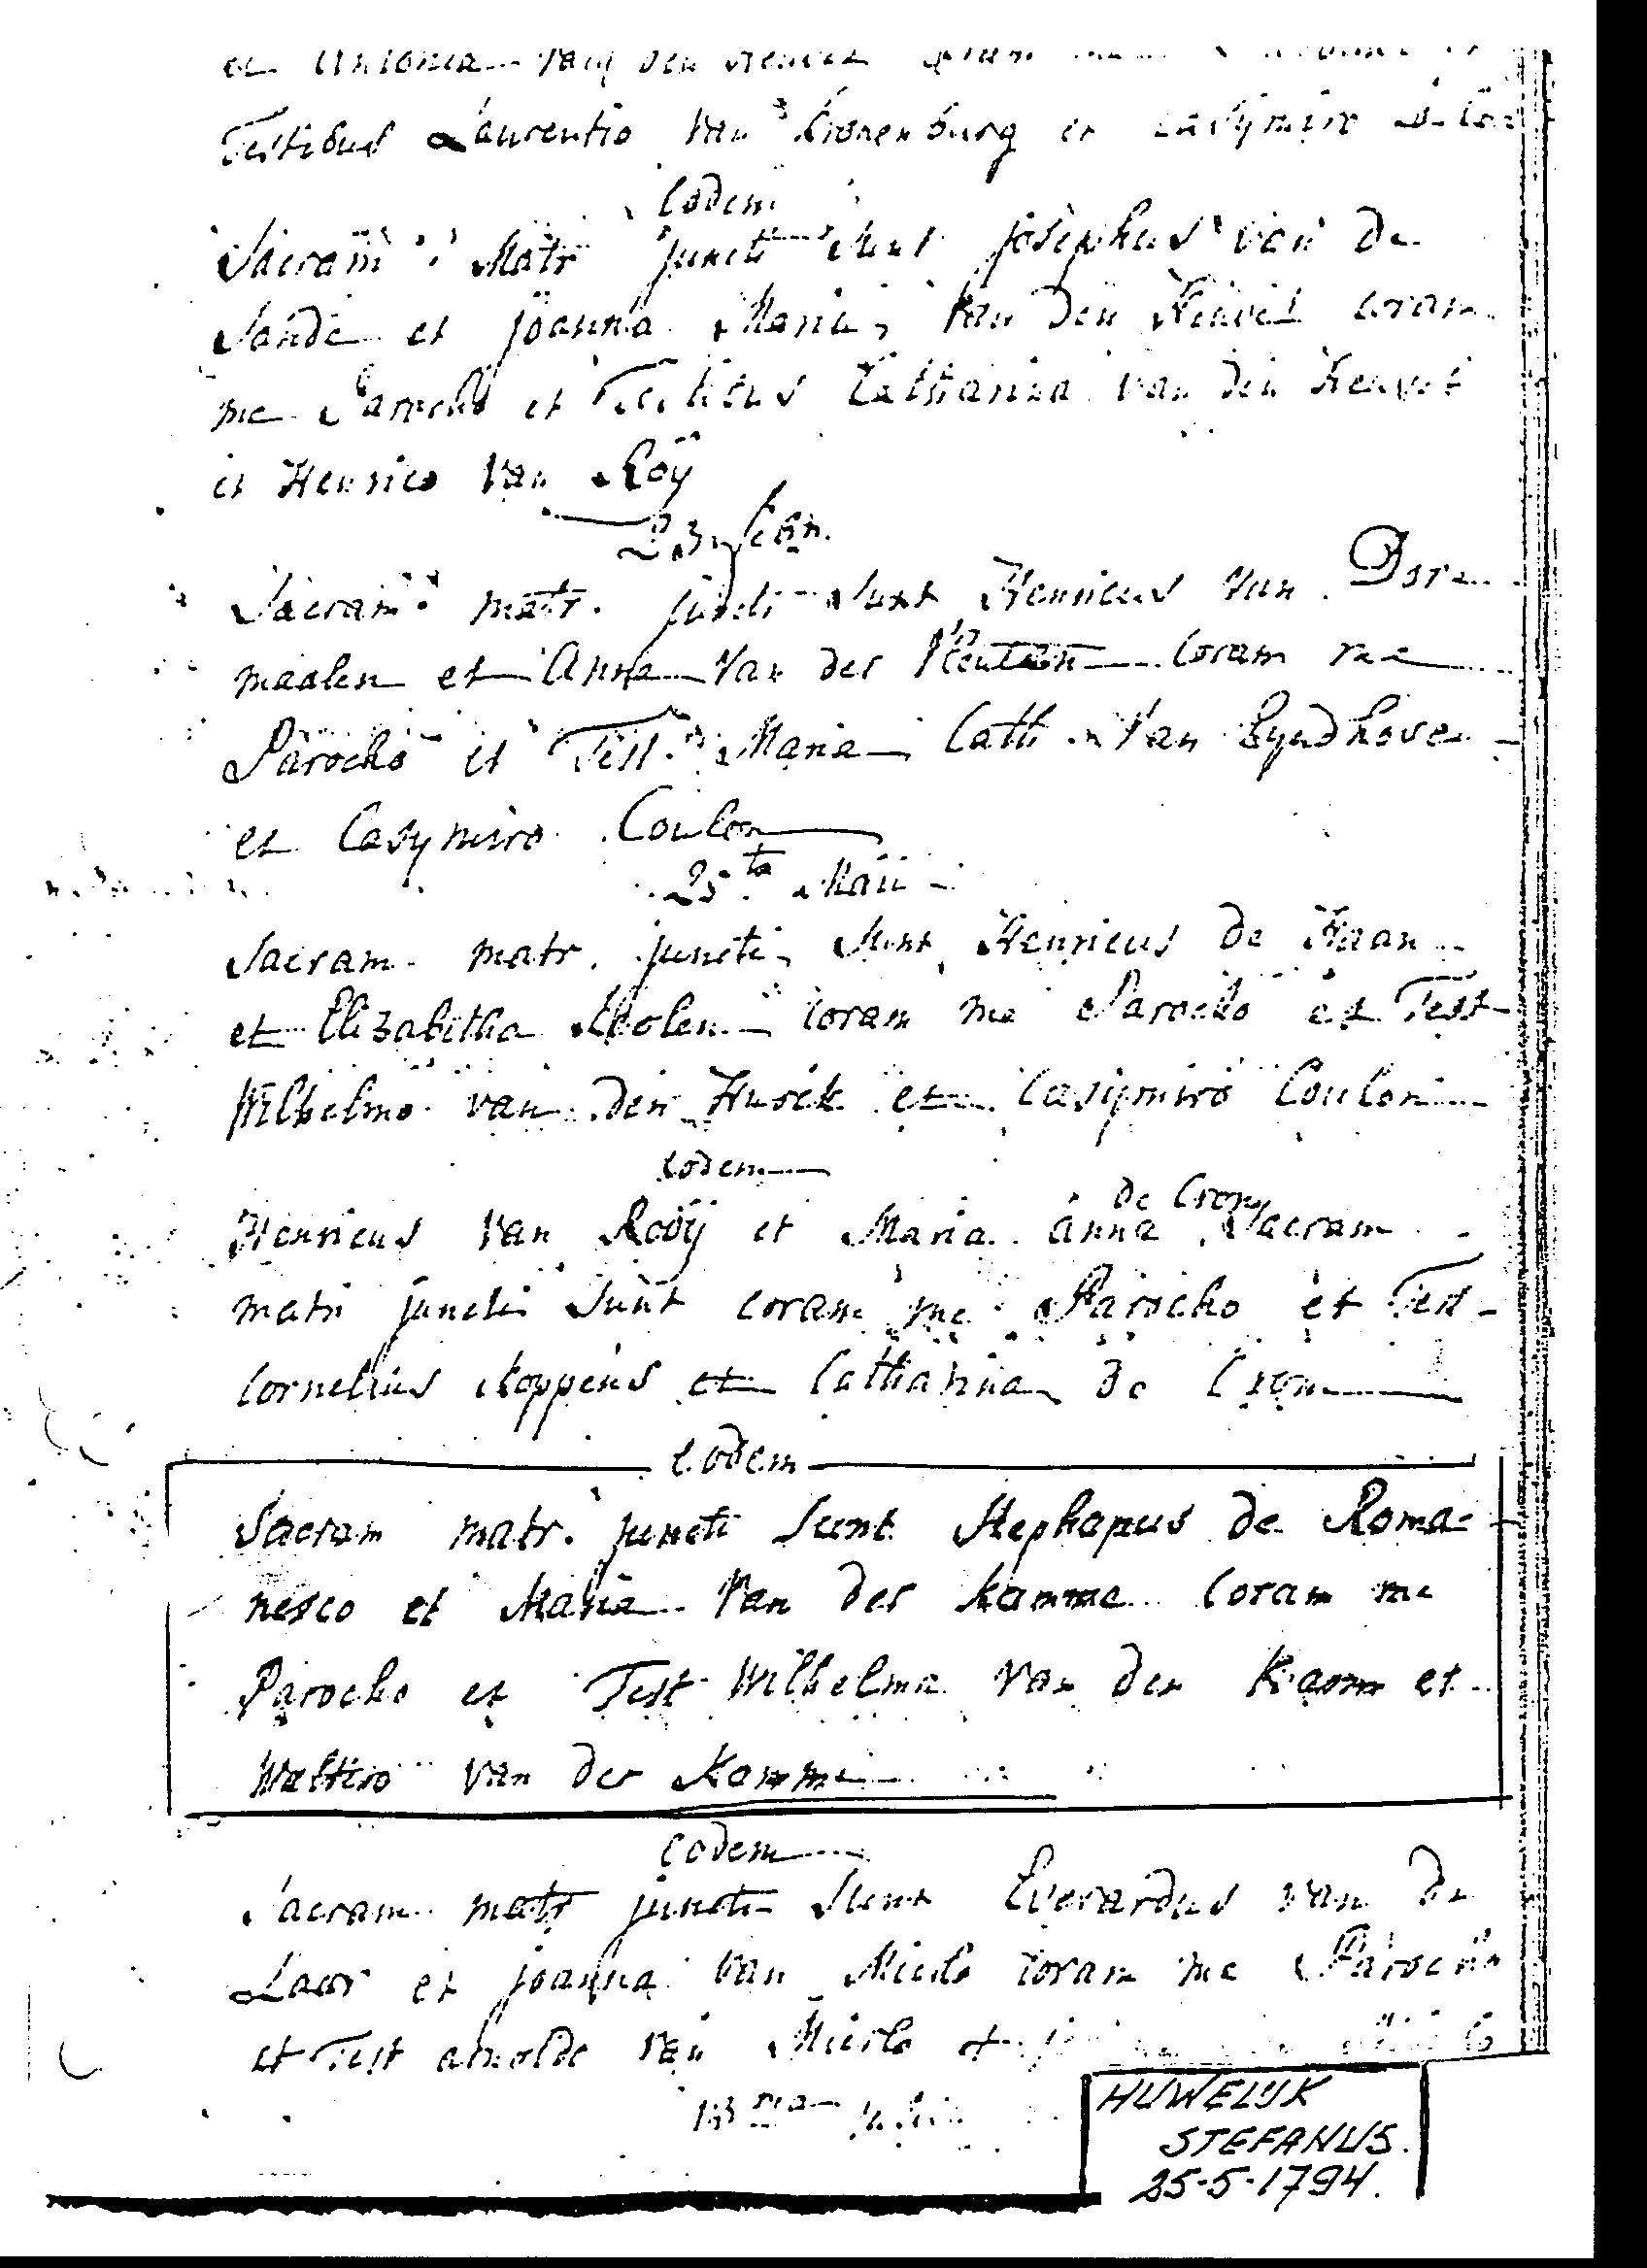 et Antonia van den Heuvel
Testibus Laurentio van Kronenburg et Casijmiro
Eodem
Sacram Matr juncti sunt josephus van de
Sande et joanna Maria van den Heuvel coram
me Parocho et Testibus Catharina van den Heuvel
et Henrico van Roÿ
23
Sacram matr. juncti sunt Henricus van Dor-
maalen et Anna van der coram me
Parocho et Test. Maria Cath van Eyndhoven
et Casymiro Coulon
25ta Maii
Sacram matr. juncti sunt Henricus de Haan
et Elizabetha Moolen coram me Parocho et Test
Wilhelmo van den Hurck et Casijmiro Coulon
Eodem
de Crom
Henricus van Rooÿ et Maria anna Sacram
matr juncti sunt coram me Parocho et Test
Cornelius Koppens et Catharina de Crom
Eodem
Sacram matr. juncti sunt Stephanus de Roma-
nesco et Maria van der kamme coram me
Parocho et Test Wilhelma van der Kamm et
Waltero van der Kamme
Eodem
Sacram matr juncti sunt Everardus van de
Laar et joanna van Mierlo coram me Parocho
et Test arnoldo van Mierlo et
HUWELIJK
STEFANUS.
25-5-1794.